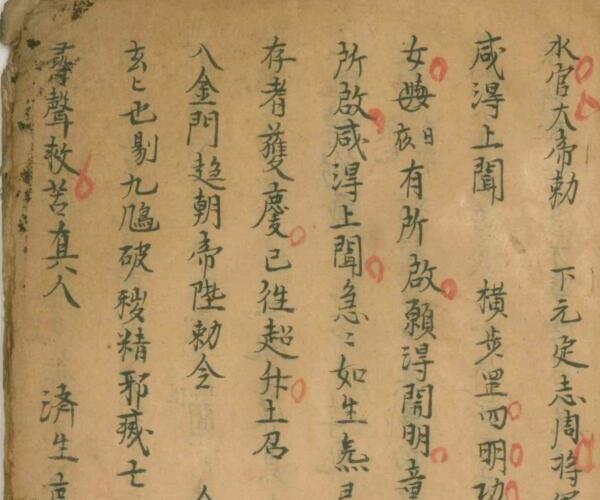 水官大帝勅　下元定志周将
咸淂上聞　横步罡四明功
女　日夜有所啟願淂開明童
所啟咸淂上聞急〻如生炁
存者獲慶已徃超升上
入金門趋朝帝陛勅令
玄〻也剔九鴆破穢精邪滅亡
尋聲救苦真人　済生